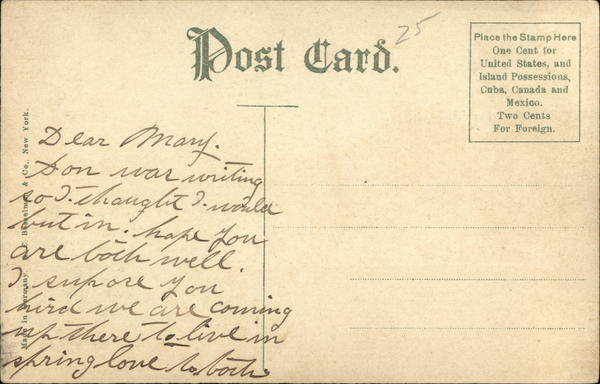 Post Card.
25
Place the Stamp Here
One Cent for
United States, and
Island Possessions,
Cuba, Canada and
Mexico.
Two Cents
For Foreign.
Dear Mary.
Son was writing
so I thought I would
but in. hope you
are both well.
I supose you
hird we are coming
up there to live in
spring love to both
Made in Germany. & Co., New York.